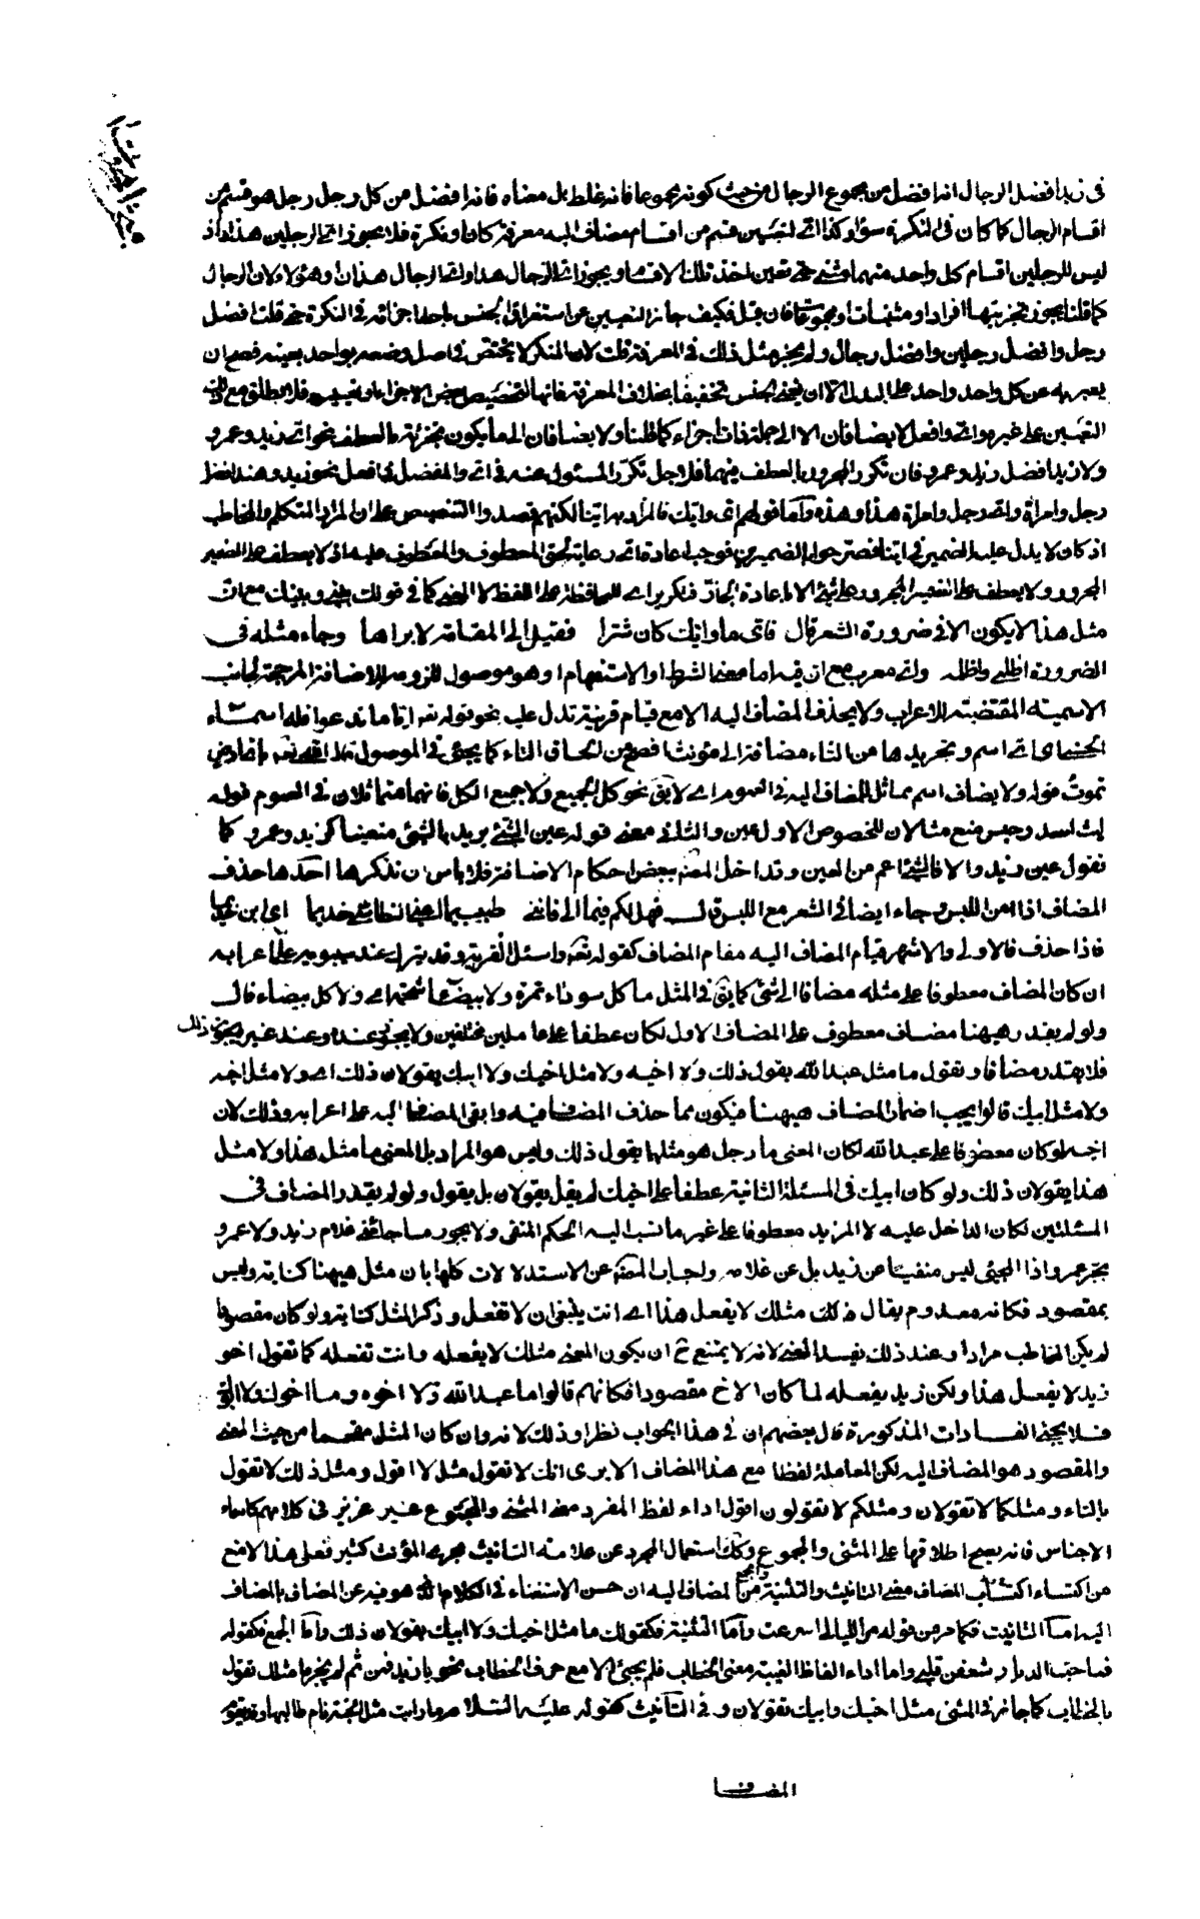 فى زيد افضل الرجال انه افضل من مجموع الرجال من حيث كونه مجموعا فانه غلط بل معناه فانه افضل من كل رجل رجل هو قسم من
اقسام الرجال كما كان فى النكرة سواء وكذا اى لتعيين قسم من اقسام مضاف اليه معرفة كان او نكرة فلا يجوز اى الرجلين هذا اذ
ليس للرجلين اقسام كل واحد منهما مثنى حتى تعين اخذ تلك الاقسام ويجوز اى الرجال هذا واى الرجال هذان او هؤلاء لان الرجال
كما قلنا يجوز تجزيتها افرادا ومثنيات او مجموعات فان قيل فكيف جاز التعبير عن استغراق الجنس باحد اجزائه فى النكرة حتى قلت افضل
رجل وافضل رجلين وافضل رجال ولم يجز مثل ذلك فى المعرفة قلت لان المنكر لا يختص فى اصل وضعه بواحد بعينه فصح ان
يعبر به عن كل واحد واحد على البدل الا ان يجئ الجنس تخفيفا بخلاف المعرفة فانها لتخصيص بعض الاجزاء وتعيينه فلا يطلق مع ذلك
التعيين على غيره واى وافعل لا يضافان الا الى جملة ذات اجزاء كما قلنا ولا يضافان الى ما يكون تجزئته بالعطف نحو اى زيد وعمرو
ولا زيد افضل زيد وعمرو فان تكرر المجرور بالعطف فيهما فلاجل تكرر المسئول عنه فى اى والمفضل فى افعل نحو زيد وهند افضل
رجل وامراة واى رجل وامراة هذا وهذه واما قولهم اى وايك فالمراد به اينا لكنهم قصدوا التنصيص على ان المراد المتكلم والمخاطب
اذ كان لا يدل عليه الضمير فى اينا فصرحوا بالضميرين فوجب اعادة اى رعاية لحق المعطوف والمعطوف عليه اذ لا يعطف على الضمير
المجرور ولا يعطف على الضمير المجرور على شئ الا باعادة الجار فتكرير اى للمحافظة على اللفظ لا المعنى كما فى قولك بينى وبينك مع ان
مثل هذا لا يكون الا فى ضرورة الشعر قال فاى ما وايك كان شرا فقيل الى المقامة لا يراها وجاء مثله فى
الضرورة اظلمى واظلمه واى معرب مع ان فيه اما معنى الشرط او الاستفهام او هو موصول للزومه للاضافة المرجحة لجانب
الاسمية المقتضية للاعراب ولا يحذف المضاف اليه الا مع قيام قرينة تدل عليه نحو قوله تعه اياما تدعوا فله اسماء
الحسنى اى اى اسم وتجريدها من التاء مضافة الى مؤنث افصح من الحاق التاء كما يجئ فى الموصول باى ارض
تموت قوله ولا يضاف اسم مماثل للمضاف اليه فى العموم اى لا يق نحو كل الجميع ولا جميع الكل فانهما متماثلان فى العموم قوله
ليث اسد وحبس منع مثالان للخصوص الاول عين والثانى معنى قوله عين الشئ يريد بالشئ متعينا كزيد وعمرو كما
تقول عين زيد والا فالشئ اعم من العين وقد اخل المصنف ببعض احكام الاضافة فلا باس ان نذكرها احدها حذف
المضاف اذا امن اللبس وجاء ايضا فى الشعر مع اللبس قال فهل لكم فيما الى فاننى طبيب بما اعيى النطاسى حذيما اى ابن حذيم
فاذا حذف فالاولى والاشهر قيام المضاف اليه مقام المضاف كقوله تعه واسئل القرية وقد يترك عند سيبويه على اعرابه
ان كان المضاف معطوفا على مثله مضافا الى شئ كما يق فى المثل ما كل سوداء تمرة ولا بيضاء شحمة اى ولا كل بيضاء قال
ولو لم يقدر ههنا مضاف معطوف على المضاف الاول لكان عطفا على عاملين مختلفين ولا يجوز عنده وعند غيره يجوز ذلك
فلا يقدر مضافا وتقول ما مثل عبد الله يقول ذلك ولا اخيه ولا مثل اخيك ولا ابيك يقولان ذلك اى ولا مثل اخيه
ولا مثل ابيك قالوا يجب اضمار المضاف ههنا فيكون مما حذف المضاف فيه وابقى المضاف اليه على اعرابه وذلك لان
اخيه لو كان معطوفا على عبد الله لكان المعنى ما رجل هو مثلهما يقول ذلك وليس هو المراد بل المعنى ما مثل هذا ولا مثل
هذا يقولان ذلك ولو كان ابيك فى المسئلة الثانية عطفا على اخيك لم يقل يقولان بل يقول ولو لم يقدر المضاف فى
المسئلتين لكان الداخل عليه لا المزيد معطوفا على غير ما نسب اليه الحكم المنفى ولا يجوز ما جاءنى غلام زيد ولا عمرو
بجر عمرو اذا المجئ ليس منفيا عن زيد بل عن غلامه واجاب المصنف عن الاستدلالات كلها بان مثل ههنا كناية وليس
بمقصود فكانه معدوم يقال مثلك لا يفعل هذا اى انت ينبغى ان لا تفعل وذكر المثل كناية ولو كان مقصودا
لم يكن المخاطب مرادا وعند ذلك يفسد المعنى لانه لا يمتنع ح ان يكون المعنى مثلك لا يفعله وانت تفعله كما تقول اخو
زيد لا يفعل هذا ولكن زيد يفعله لما كان الاخ مقصودا فكانهم قالوا ما عبد الله ولا اخوه وما اخوك ولا ابوك
فلا يجئ الفسادات المذكورة قال بعضهم ان فى هذا الجواب نظرا وذلك لانه وان كان المثل مقحما من حيث المعنى
والمقصود هو المضاف اليه لكن المعاملة لفظا مع هذا المضاف الا يرى انك لا تقول مثلى لا اقول ومثل ذلك لا تقول
بالتاء ومثلكما لا تقولان ومثلكم لا تقولون اقول اداء لفظ المفرد معنى المثنى والمجموع غير عزيز فى كلامهم كاسماء
الاجناس فانه يصح اطلاقها على المثنى والمجموع وكذلك استعمال المجرد عن علامة التانيث مجرى المؤنث كثير فعلى هذا لا منع
من اكتساء اكتساب المضاف معنى التانيث والتثنية والجمع من المضاف اليه ان حسن الاستغناء فى الكلام الذى هو فيه عن المضاف بالمضاف
اليه اما التانيث فكما مر من قوله مر الليالى اسرعت واما التثنية فكقولك ما مثل اخيك ولا ابيك يقولان ذلك واما الجمع فكقوله
فما حب الديار شغفن قلبى واما اداء الفاظ الغيبة معنى الخطاب فلم يجئ الا مع حرف الخطاب نحو يا زيد فمن ثم لم يجز ما مثلك تقول
بالخطاب كما جاز فى المثنى مثل اخيك وابيك تقولان وفى التانيث كقوله عليه السلام ما رايت مثل الجنة نام طالبها وقد يقوم
المضاف